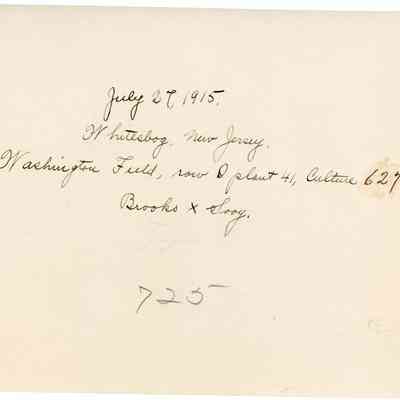 July 27, 1915.
Whitesbog, New Jersey.
Washington Field, row D plant 41, Culture 627
Brooks x Sooy.
725